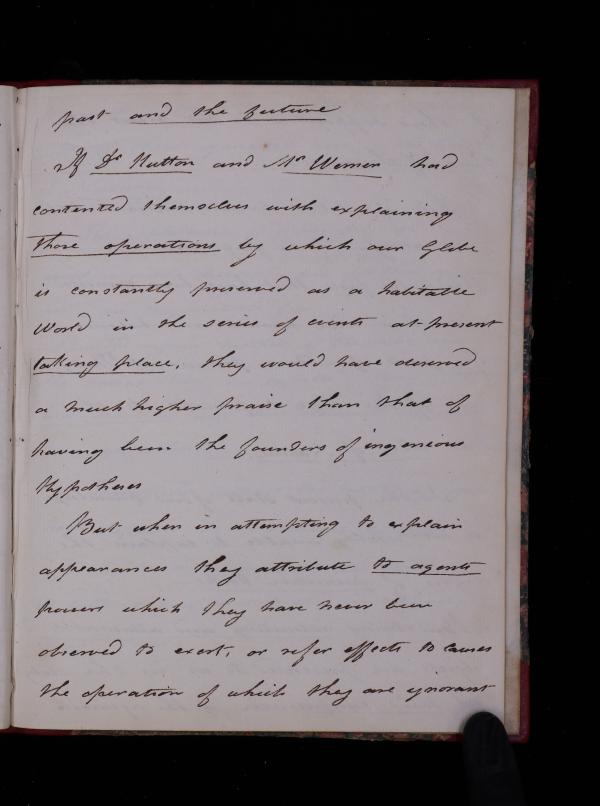 past and the future
If Dr Hutton and Mr Werner had
contented themselves with explaining
those operations by which our Globe
is constantly preserved as a habitable
World in the series of events at present
taking place, they would have deserved
a much higher praise than that of
having been the founders of ingenious
Hypotheses
But when in attempting to explain
appearances they attribute to agents
powers which they have never been
observed to exert, or refer effects to causes
the operation of which they are ignorant